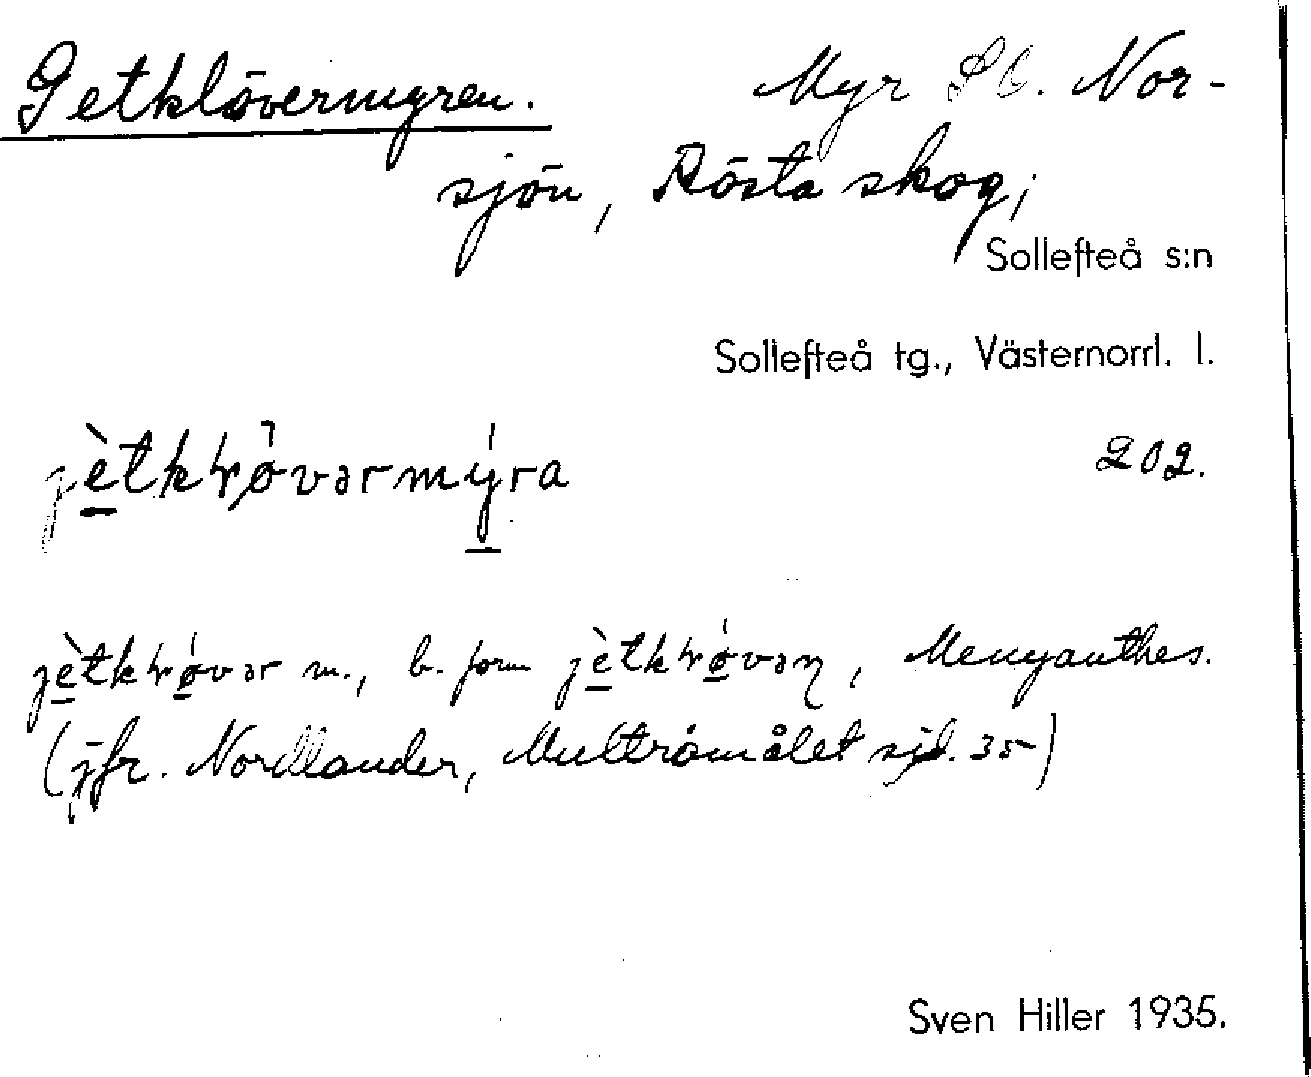 Getklövermyren. Myr SO. Nor-
sjön, Rösta skog,
Sollefteå s:n
Sollefteå tg., Västernorrl. l.
jètkɽøvərmýra 202.
jètkɽøvər m., b. form jètkɽøvəṇ, Menyanthes.
(jfr. Nordlander, Multråmålet sid. 35)
Sven Hiller 1935.